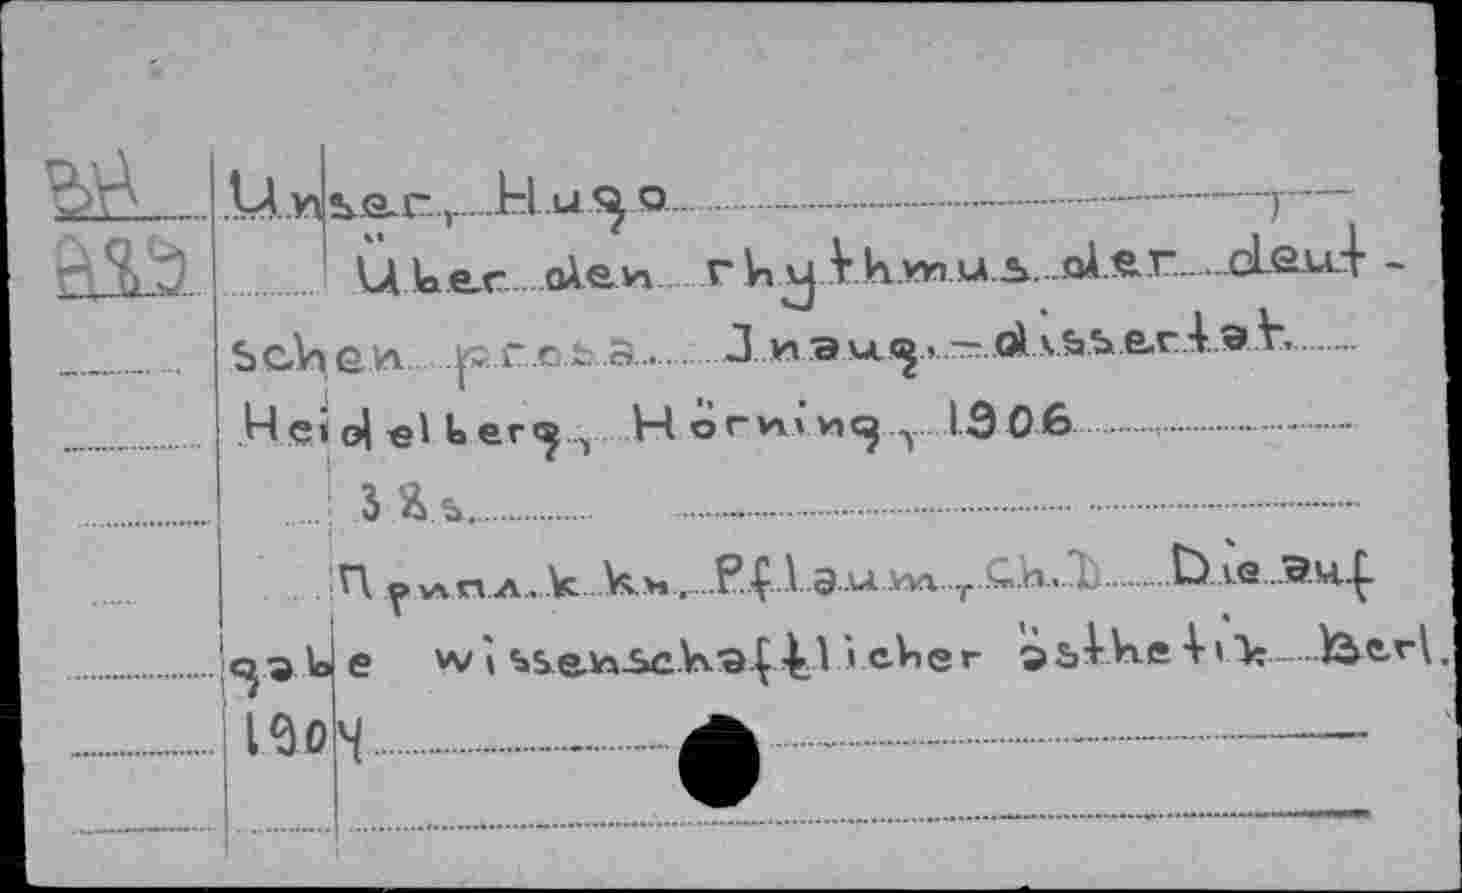 Unser, Hugo
Über den rhythmus der deut-
schen prosa. Inaug.-dissertat.
Heidelberg, Hörning, 1906
38 s.
Припл. к кн. Pflaum, Ch. D. Die auf
gabe wissenschaftlicher ästhetik Berl.
1904